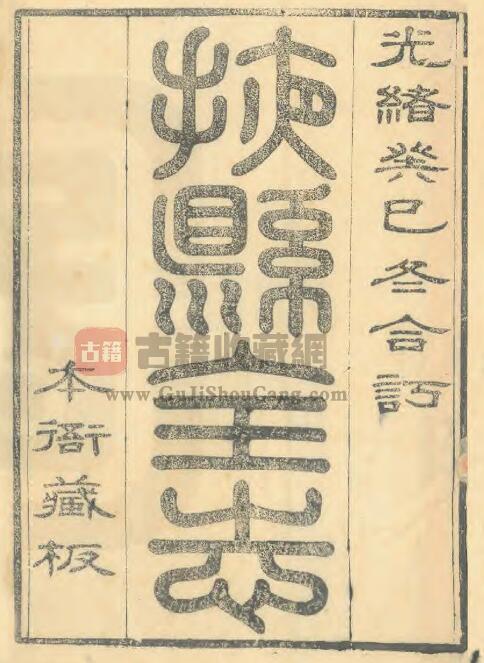 光緒癸巳冬合訂
掖縣全志
本衙藏板
古籍
古籍收藏網
www.GuJiShouCang.com